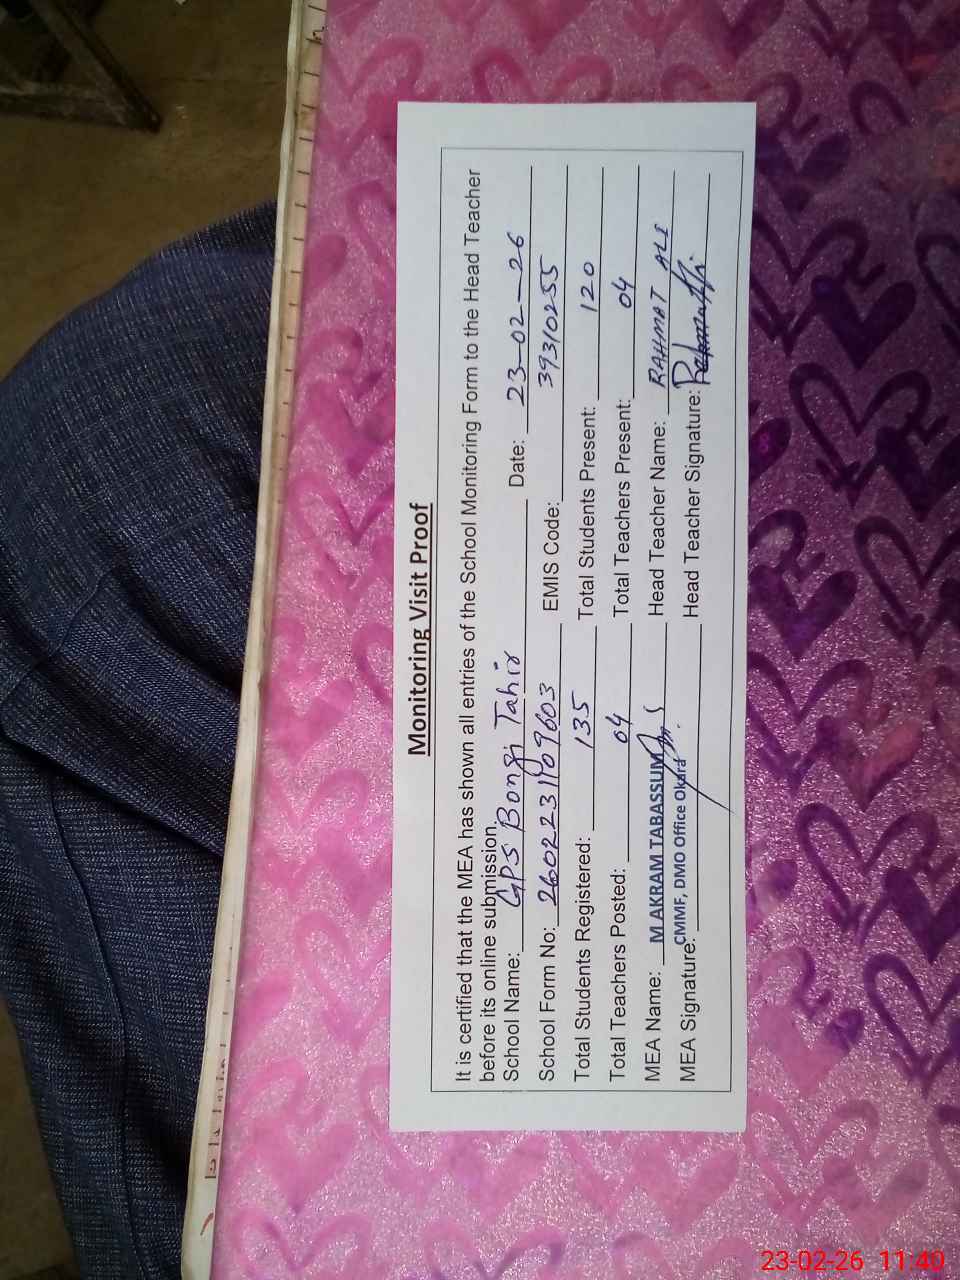 Monitoring Visit Proof
It is certified that the MEA has shown all entries of the School Monitoring Form to the Head Teacher
before its online submission.
School Name: GPS Bongi Tahir Date: 23-02-26
School Form No: 2602231109603 EMIS Code: 39310255
Total Students Registered: 135 Total Students Present: 120
Total Teachers Posted: 04 Total Teachers Present: 04
MEA Name: M AKRAM TABASSUM Head Teacher Name: RAHMAT ALI
CMMF, DMO Office Okara
MEA Signature: Head Teacher Signature:
23-02-26 11:40